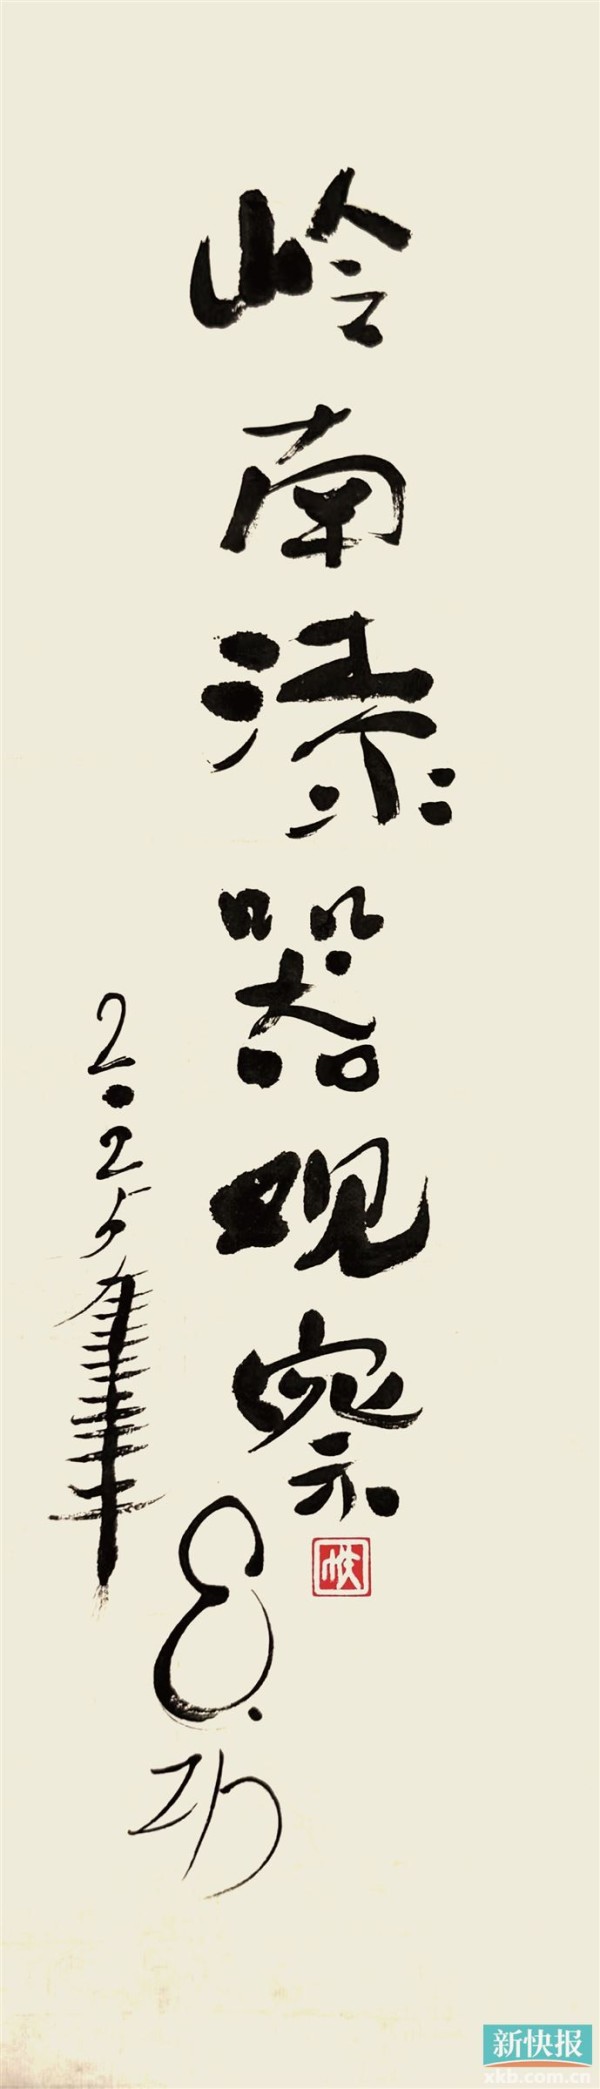 岭南漆器观察
2025年
功
新快报
xkb.com.cn